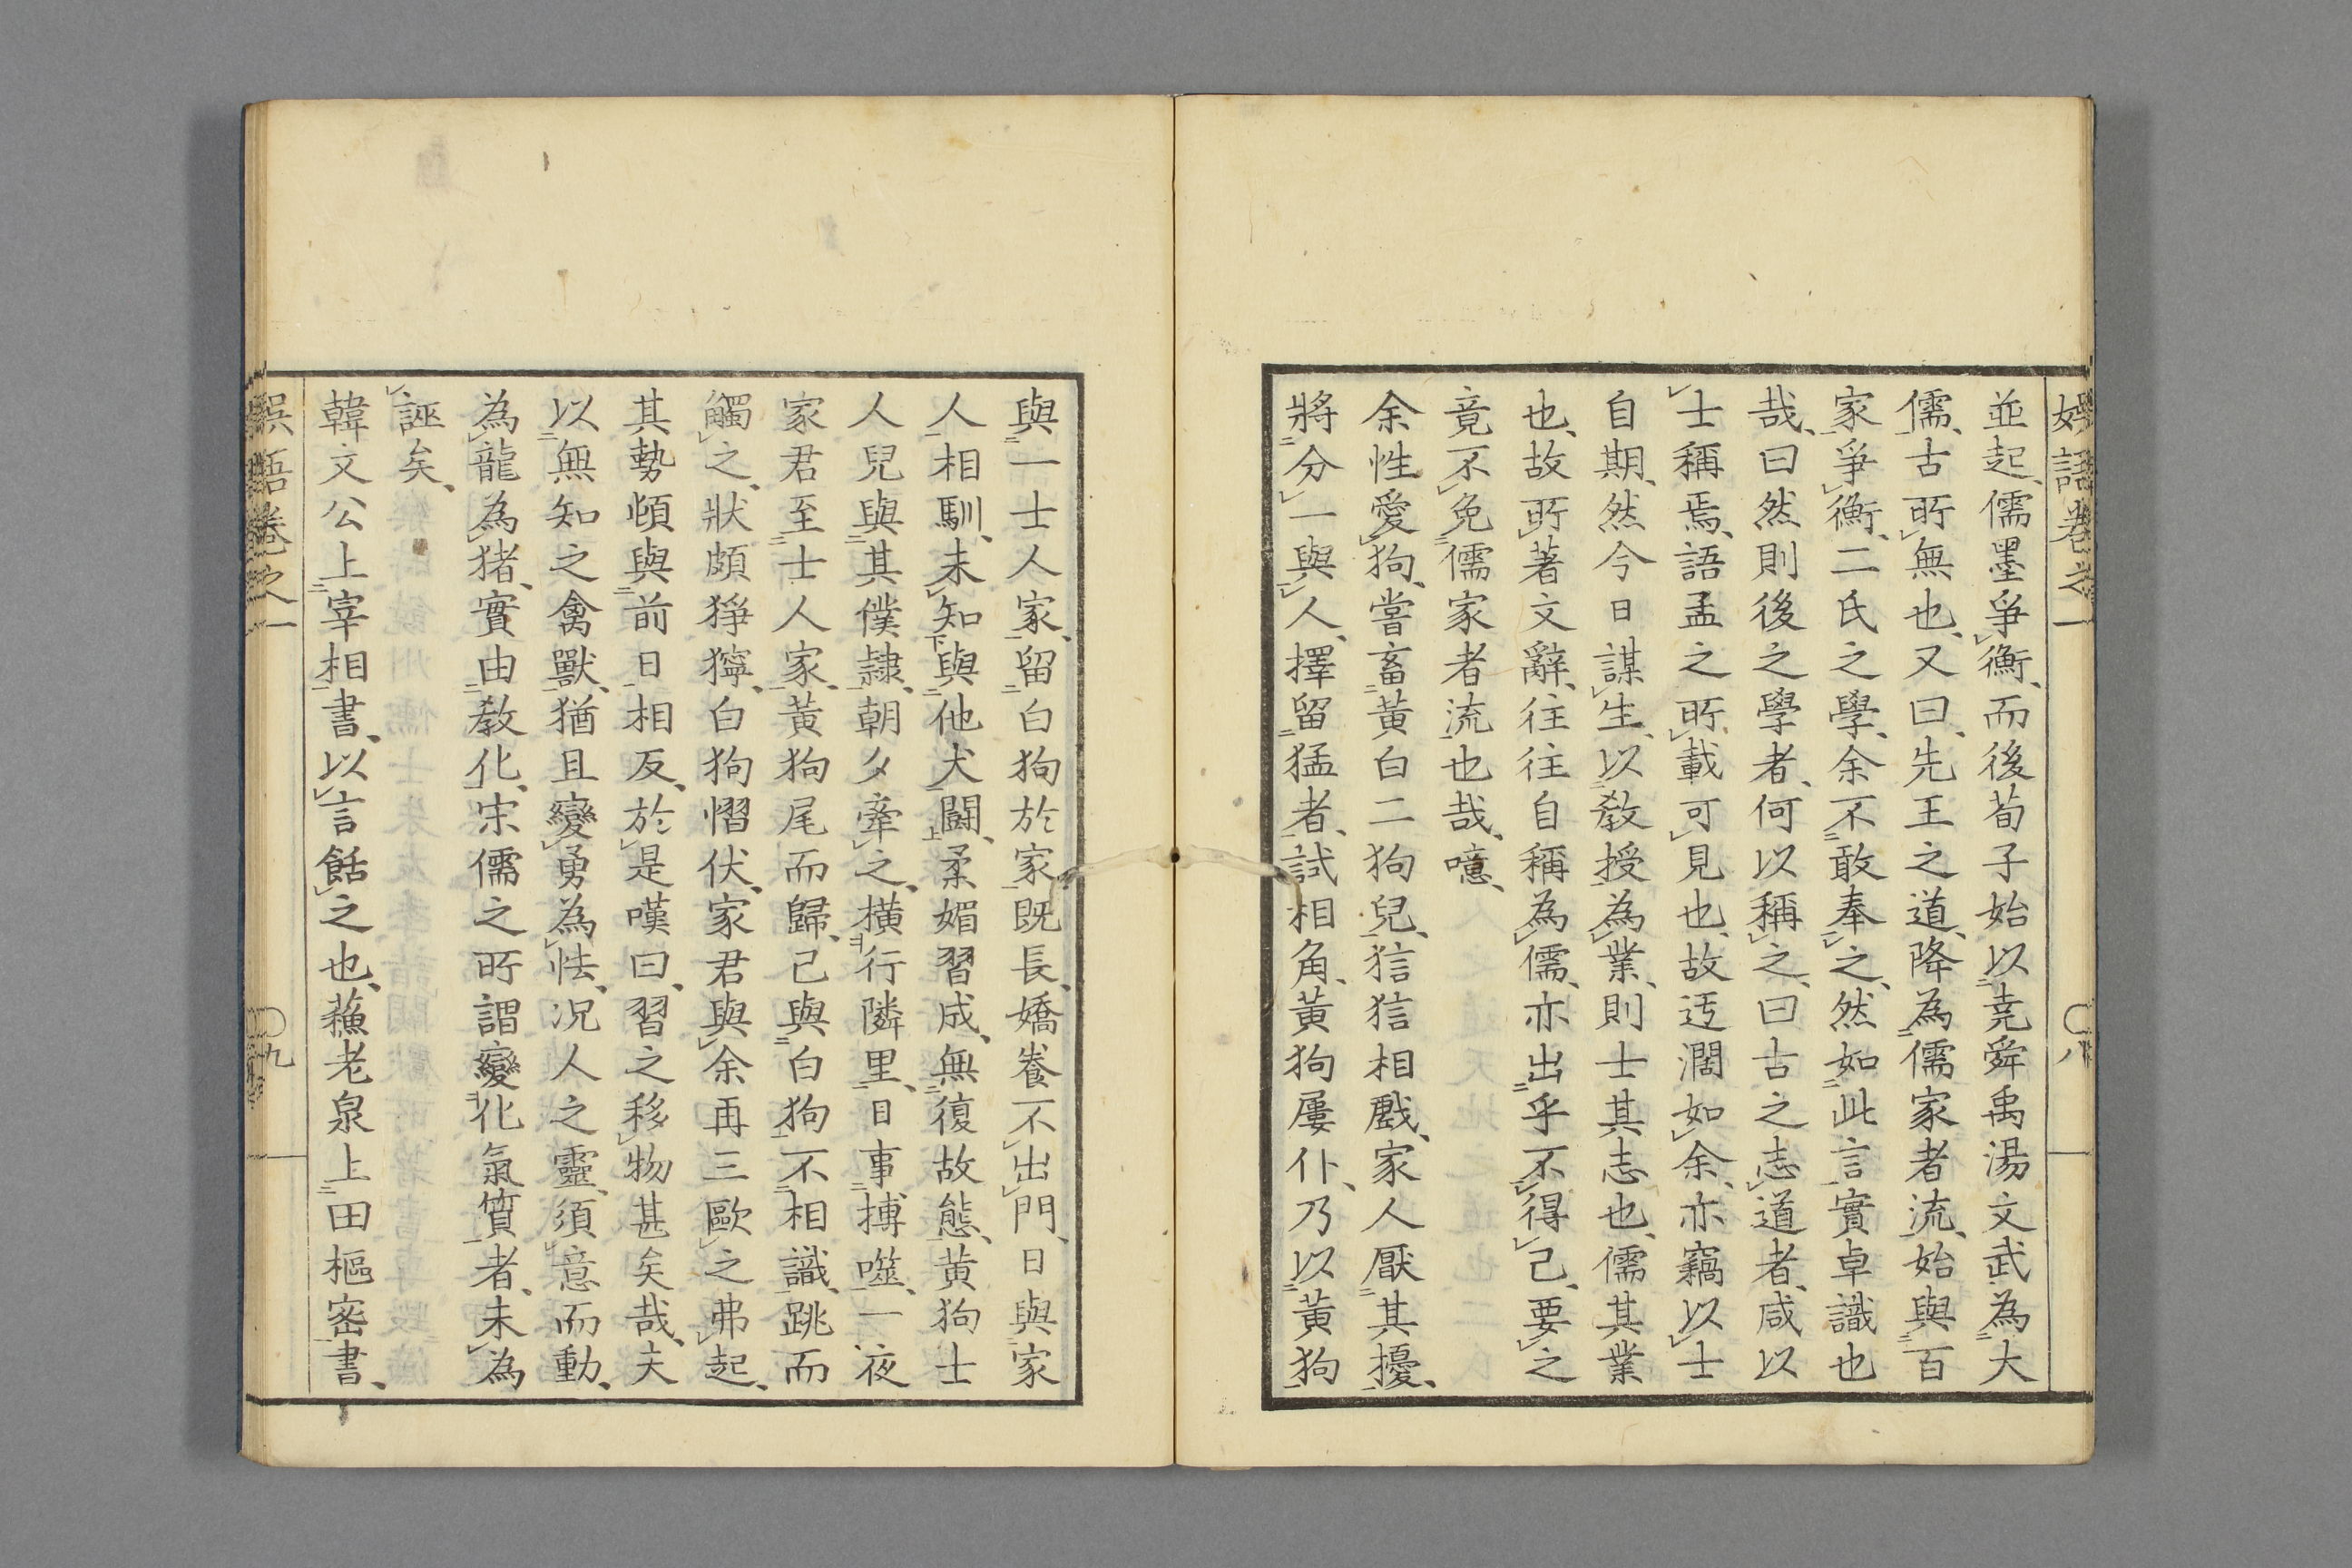 語卷之一 〇八
並起、儒墨爭衡、而後荀子始以堯舜禹湯文武為大
儒、古所無也、又曰、先王之道、降為儒家者流、始與百
家爭衡、二氏之學、余不敢奉之、然如此言實卓識也
哉、曰然則後之學者、何以稱之、曰古之志道者、咸以
士稱焉、語孟之所載可見也、故迃濶如余、亦竊以士
自期、然今日謀生、以教授為業、則士其志也、儒其業
也、故所著文辭、往往自稱為儒、亦出乎不得已、要之
竟不免儒家者流也哉、噫、
余性愛狗、嘗畜黃白二狗兒、狺狺相戲、家人厭其擾、
將分一與人、擇留猛者、試相角、黃狗屢仆、乃以黃狗
與一士人家、留白狗於家、既長、嬌養不出門、日與家
人相馴、未知與他犬鬪、柔媚習成、無復故態、黃狗士
人兒與其僕隷、朝夕牽之、橫行隣里、日事搏噬、一夜
家君至士人家、黃狗尾而歸、已與白狗不相識、跳而
觸之、狀頗猙獰、白狗慴伏、家君與余再三歐之弗起、
其勢頓與前日相反、於是嘆曰、習之移物甚矣哉、夫
以無知之禽獸、猶且變勇為怯、況人之靈、須意而動、
為龍為猪、實由教化、宋儒之所謂變化氣質者、未為
誣矣、
韓文公上宰相書、以言餂之也、蘓老泉上田樞密書、
語卷之一 〇九